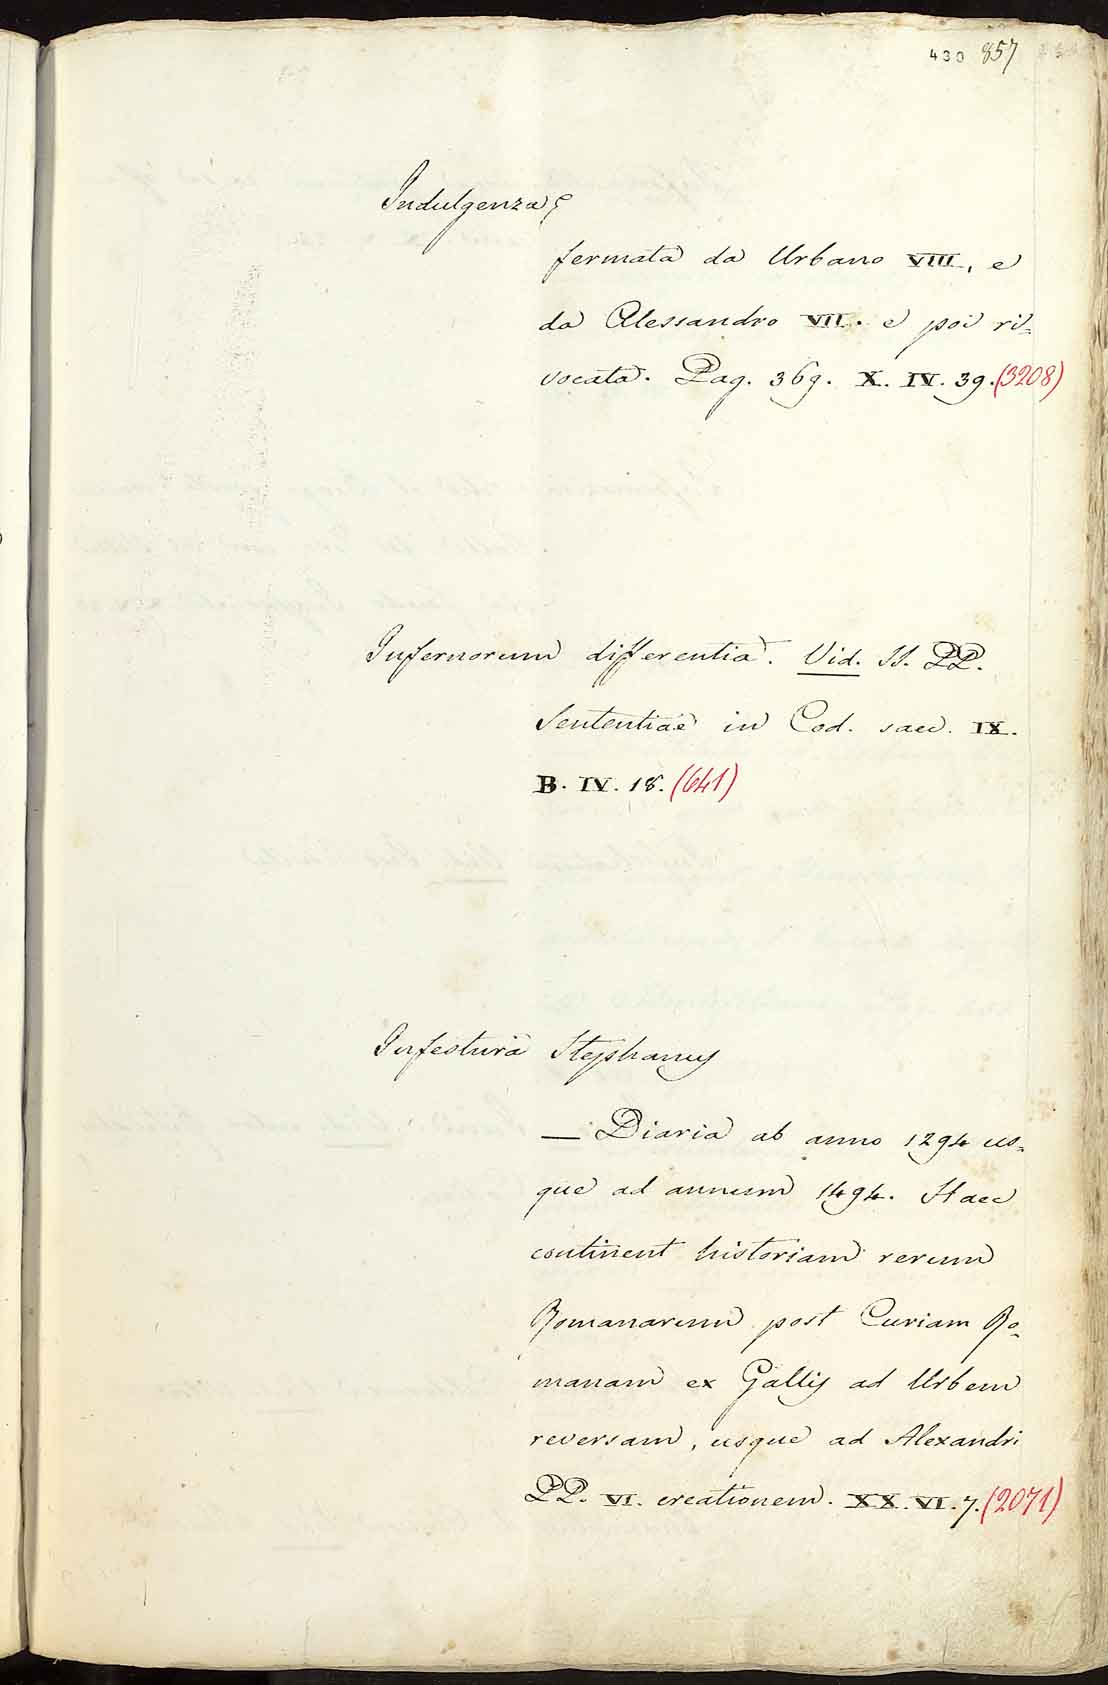 430 857
Indulgenza
fermata da Urbano VIII, e
da Alessandro VII. e poi ri=
vocata. Pag. 369. X. IV. 39. (3208)
Infernorum differentia. Vid. SS. PP.
Sententiae in Cod. saec. IX.
B. IV. 18. (641)
Infestura Stephanus
— Diaria ab anno 1294 us=
que ad annum 1494. Haec
continent historiam rerum
Romanarum post Curiam Ro=
manam ex Gallis ad Urbem
reversam, usque ad Alexandri
PP. VI. creationem. XX. VI. 7. (2071)